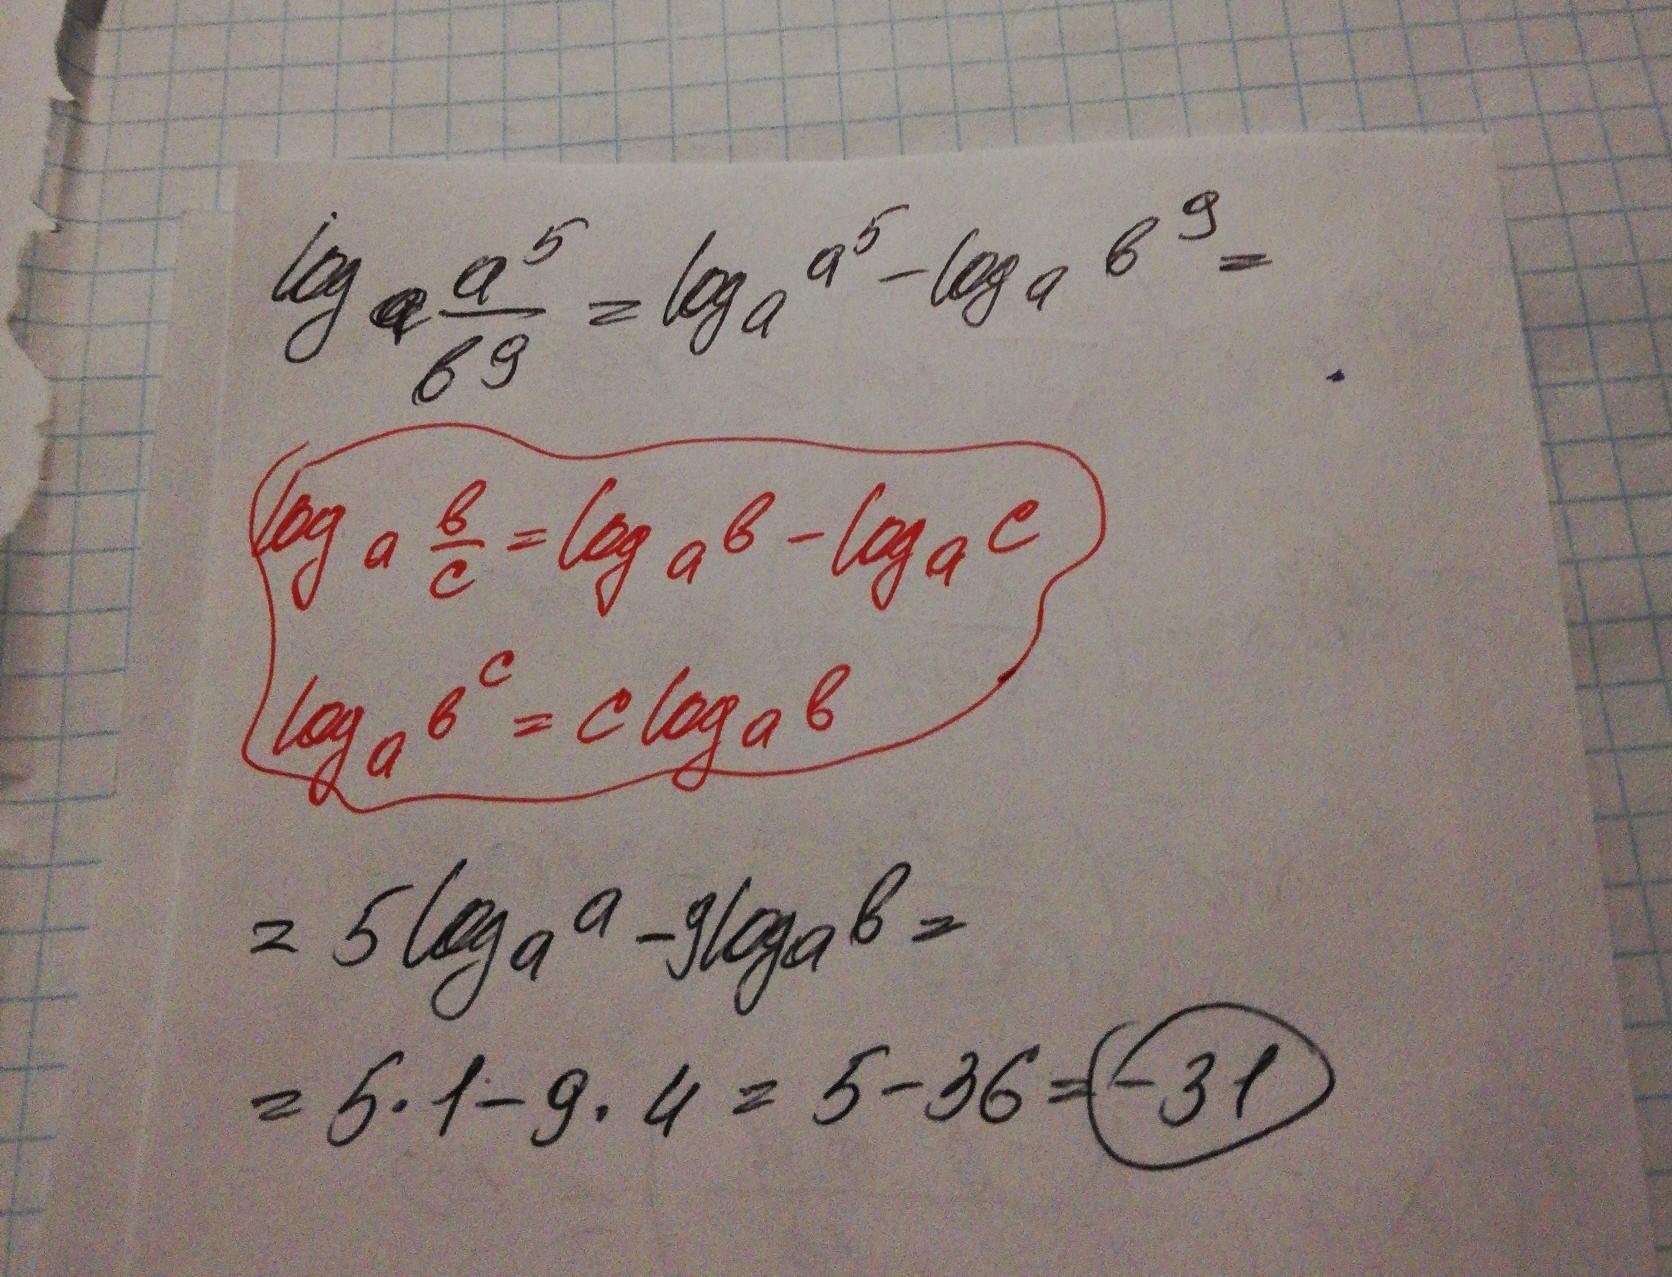 logₐ a⁵/b⁹ = logₐ a⁵ - logₐ b⁹ =
logₐ b/c = logₐ b - logₐ c
logₐ bᶜ = c logₐ b
= 5 logₐ a - 9 logₐ b =
= 5 · 1 - 9 · 4 = 5 - 36 = -31